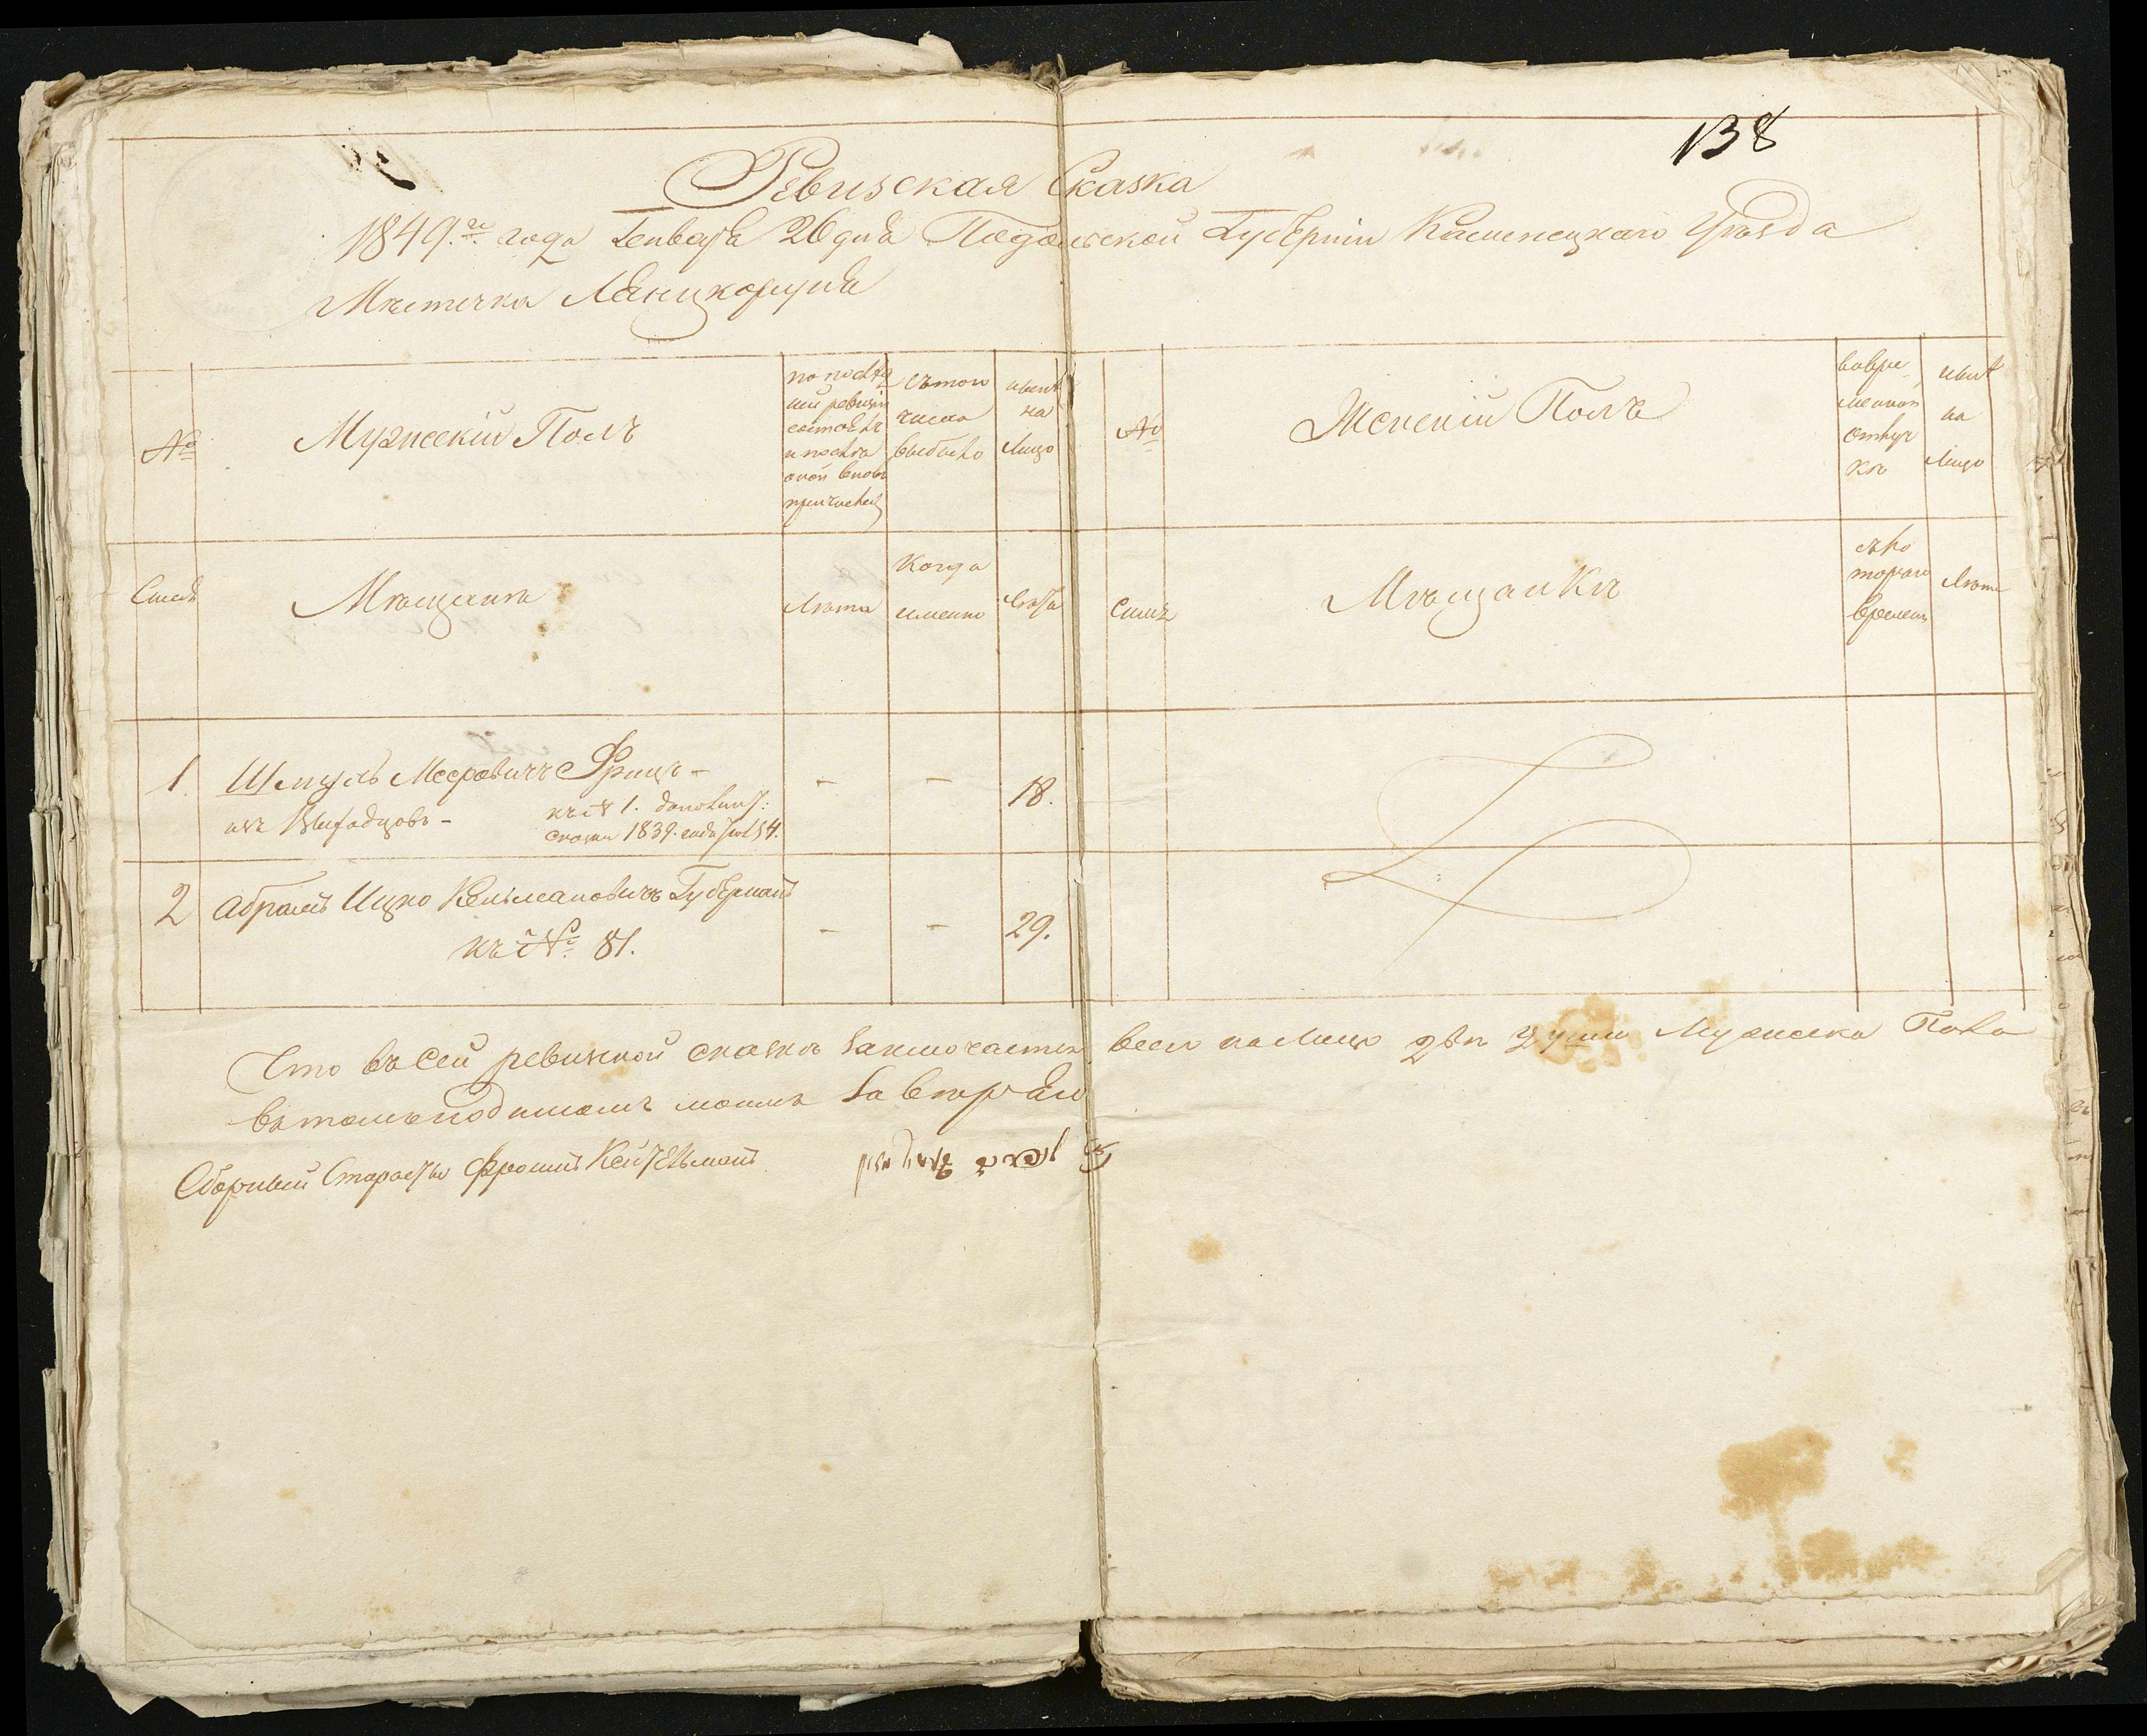 138
Ревизская Сказка
1849.го года Генваря 26 дня Подольской Губерніи Каменецкаго Уѣзда
Мѣстечка Лянцкоруня
№
Мужескій Полъ
по послѣд
ней ревизіи
состояло
и послѣ
оной вновь
причислен
съ того
числа
выбыло
нынѣ
на
лицо
№
Женскій Полъ
вовре
менной
отлуч
кѣ
нынѣ
на
лицо
Семья
Мѣщане
Лѣта
Когда
именно
Лѣта
Семья
Мѣщанки
съ ко
тораго
времени
Лѣта
1.
Шмуль Мееровичъ Фрицъ –
–
–
18.
изъ
къ № 1. дополнит:
сказки 1839. года
2
Абрамъ Ицко Кельмановичъ Губерманъ
–
–
29.
къ № 81.
Что въ сей ревизской сказкѣ заключается всего на лицо двѣ души Мужеска Пола
въ томъ подписомъ моимъ
Сборный Староста Фроимъ